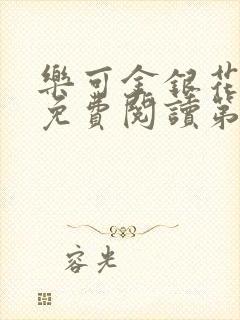 樂可金銀花
免費閱讀第
容光